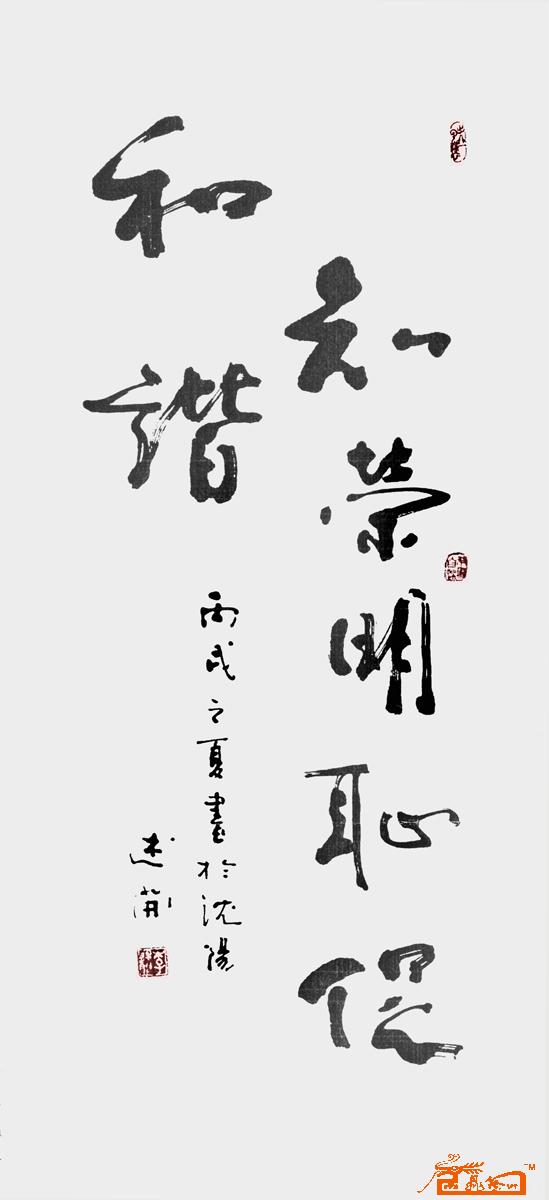 知荣明恥促
和諧
丙戌之夏書於沈陽
述開